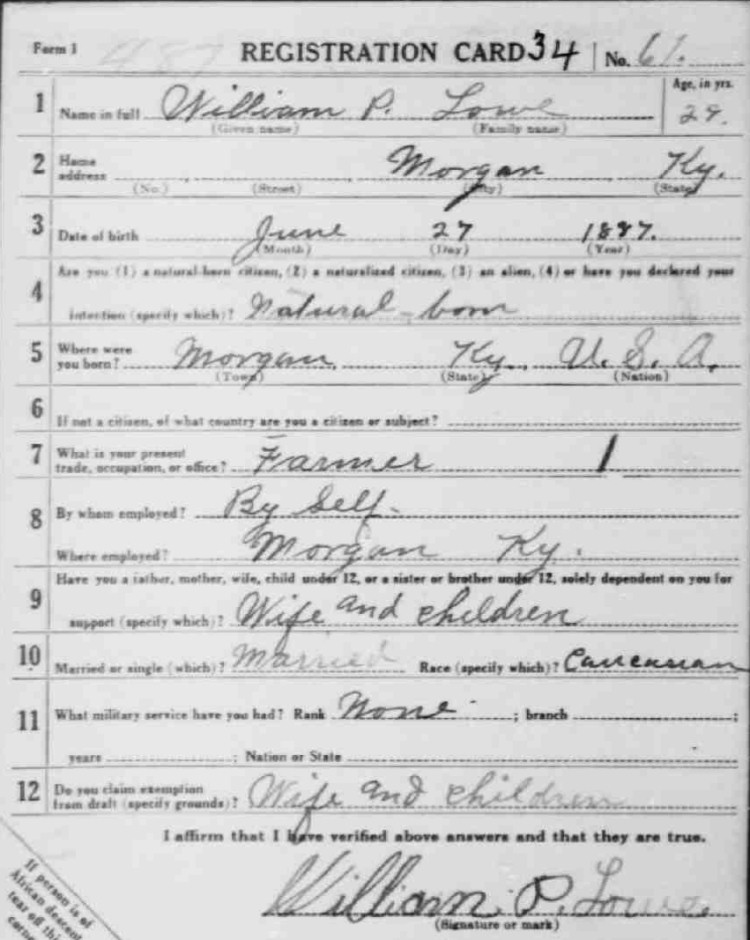 Form 1 487 REGISTRATION CARD 34 No. 61.
1 Name in full William P. Lowe Age, in yrs.
(Given name) (Family name) 29.
2 Home address Morgan Ky.
(No.) (Street) (City) (State)
3 Date of birth June 27 1887.
(Month) (Day) (Year)
4 Are you (1) a natural-born citizen, (2) a naturalized citizen, (3) an alien, (4) or have you declared your
intention (specify which)? Natural-born
5 Where were you born? Morgan, Ky., U. S. A.
(Town) (State) (Nation)
6 If not a citizen, of what country are you a citizen or subject?
7 What is your present trade, occupation, or office? Farmer 1
8 By whom employed? By Self.
Where employed? Morgan Ky.
9 Have you a father, mother, wife, child under 12, or a sister or brother under 12, solely dependent on you for
support (specify which)? Wife and children
10 Married or single (which)? Married Race (specify which)? Caucasian
11 What military service have you had? Rank None ; branch ;
years ; Nation or State
12 Do you claim exemption from draft (specify grounds)? Wife and children
I affirm that I have verified above answers and that they are true.
William P. Lowe.
(Signature or mark)
If person is of
African descent
tear off this